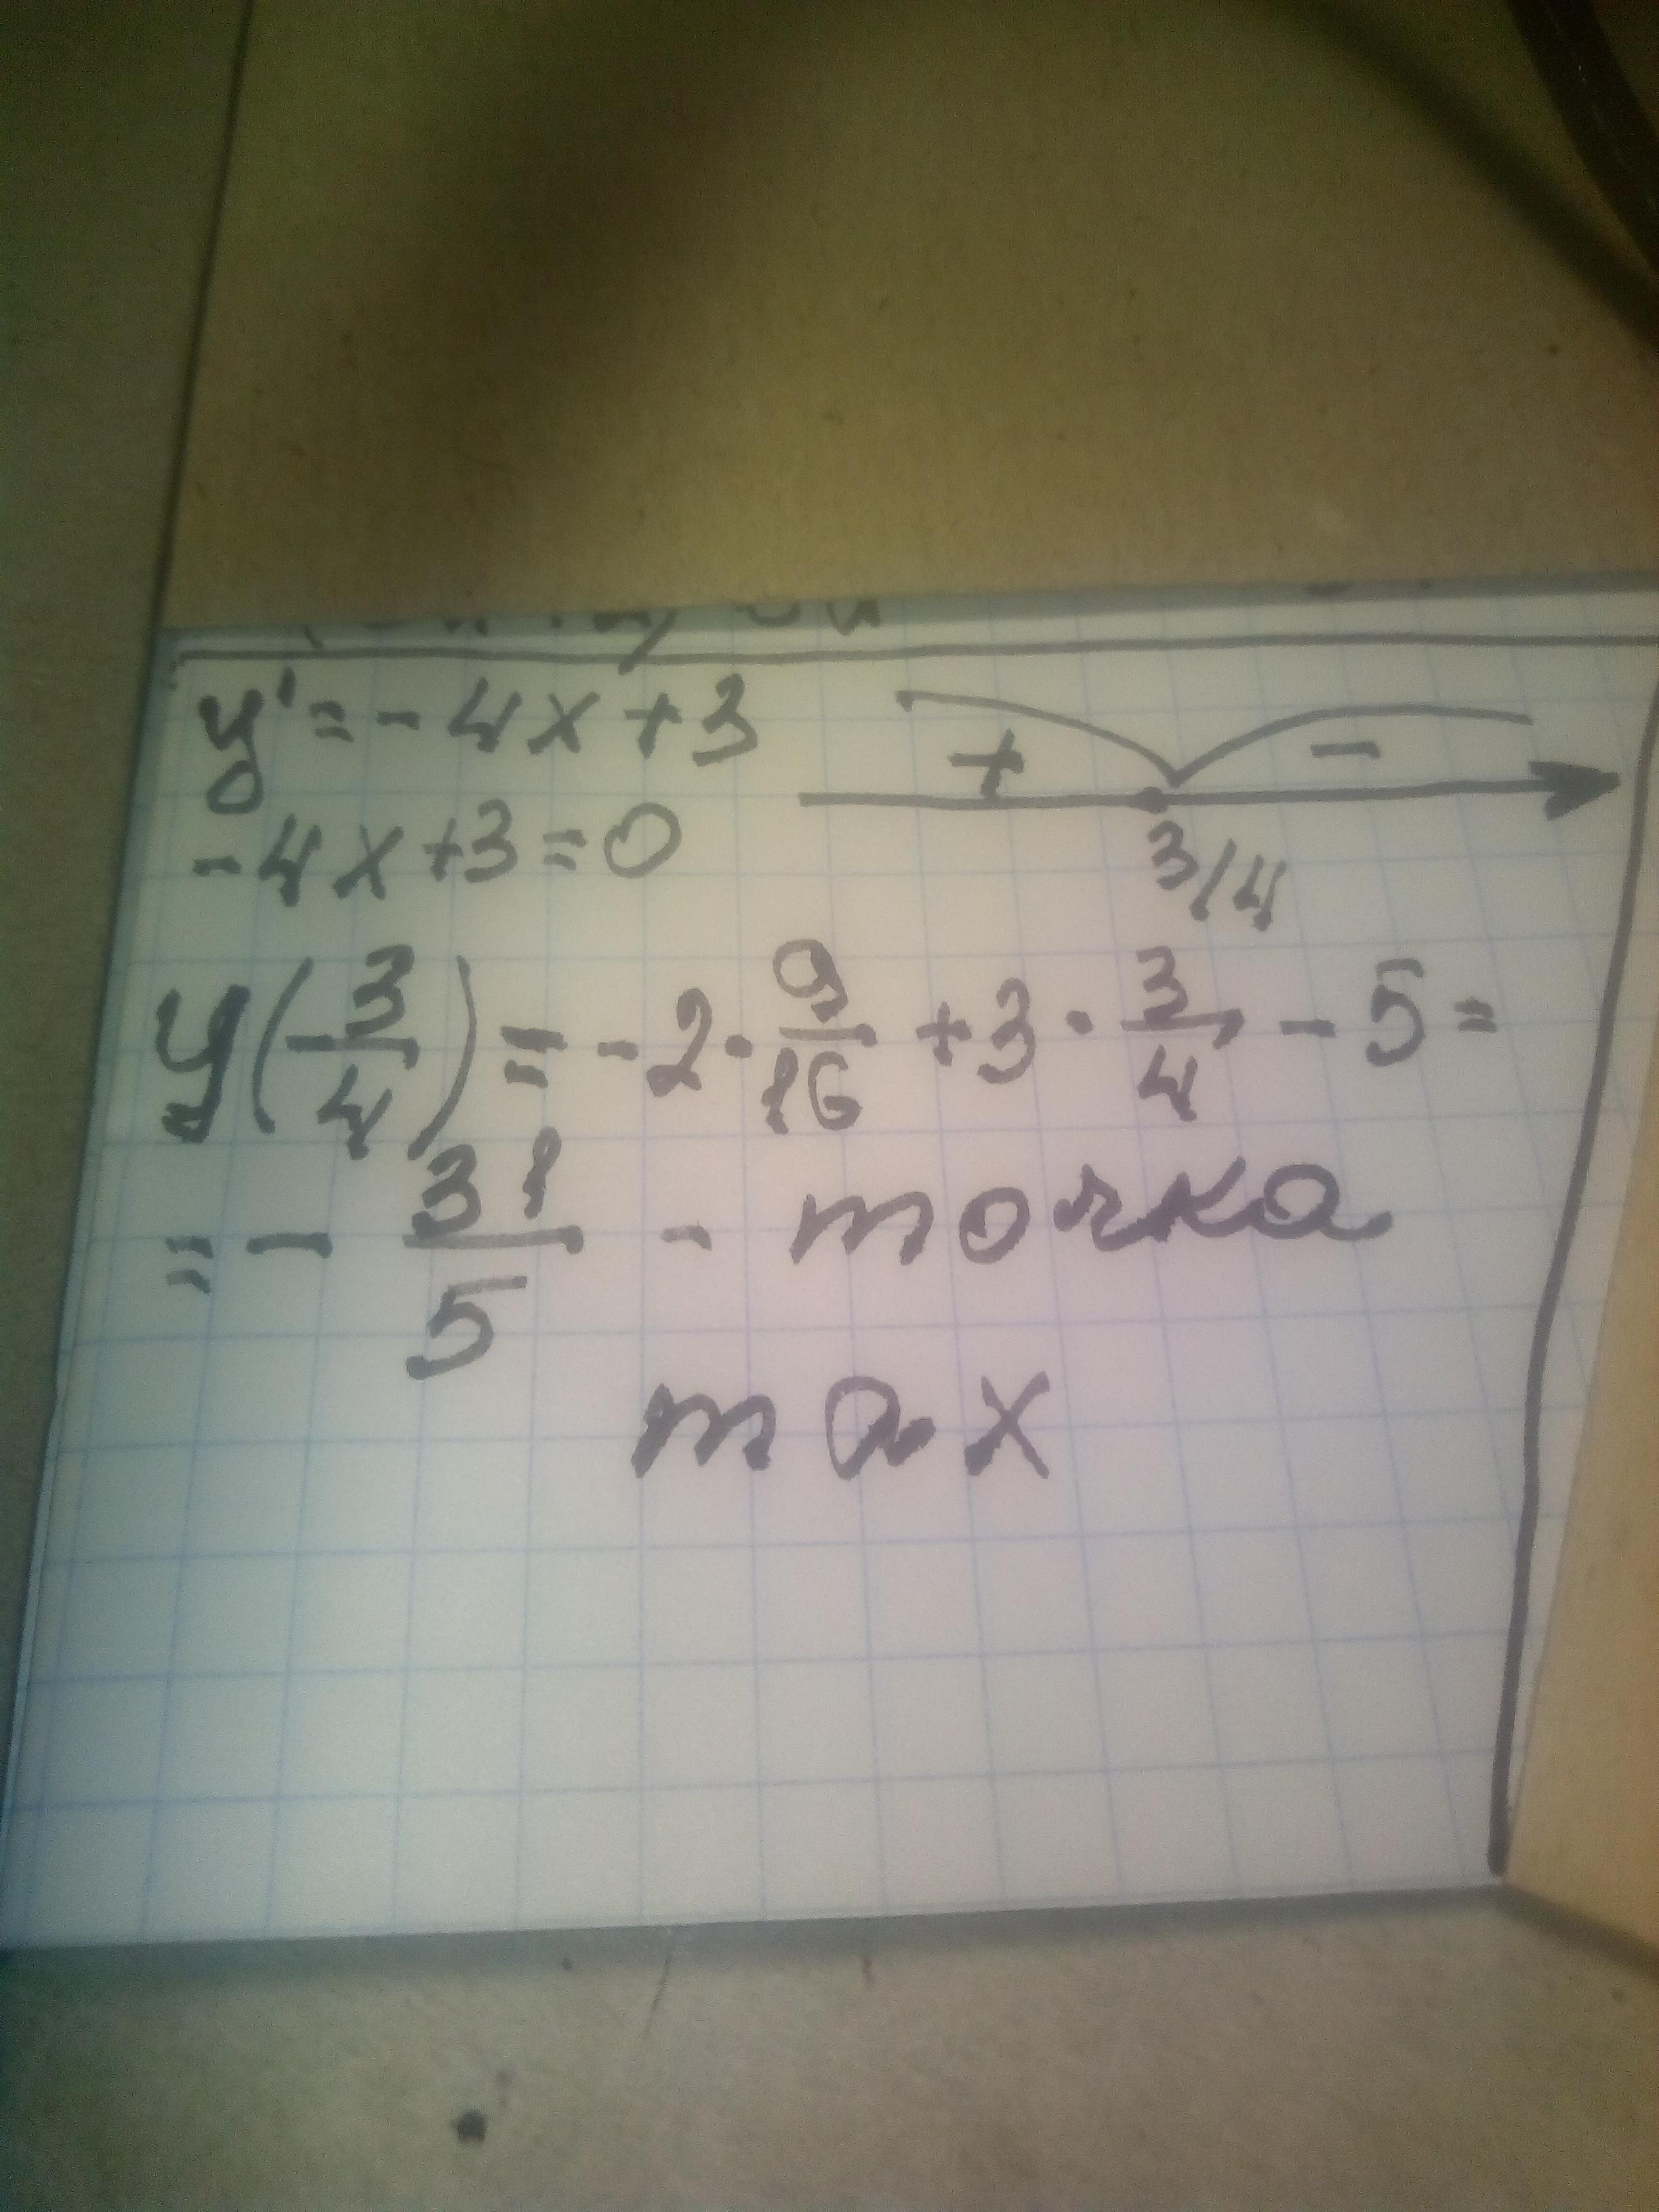 y' = -4x+3
+ -
-4x+3=0
3/4
y(-3/4) = -2·9/16 +3·3/4 - 5 =
= - 31/5 - точка
max